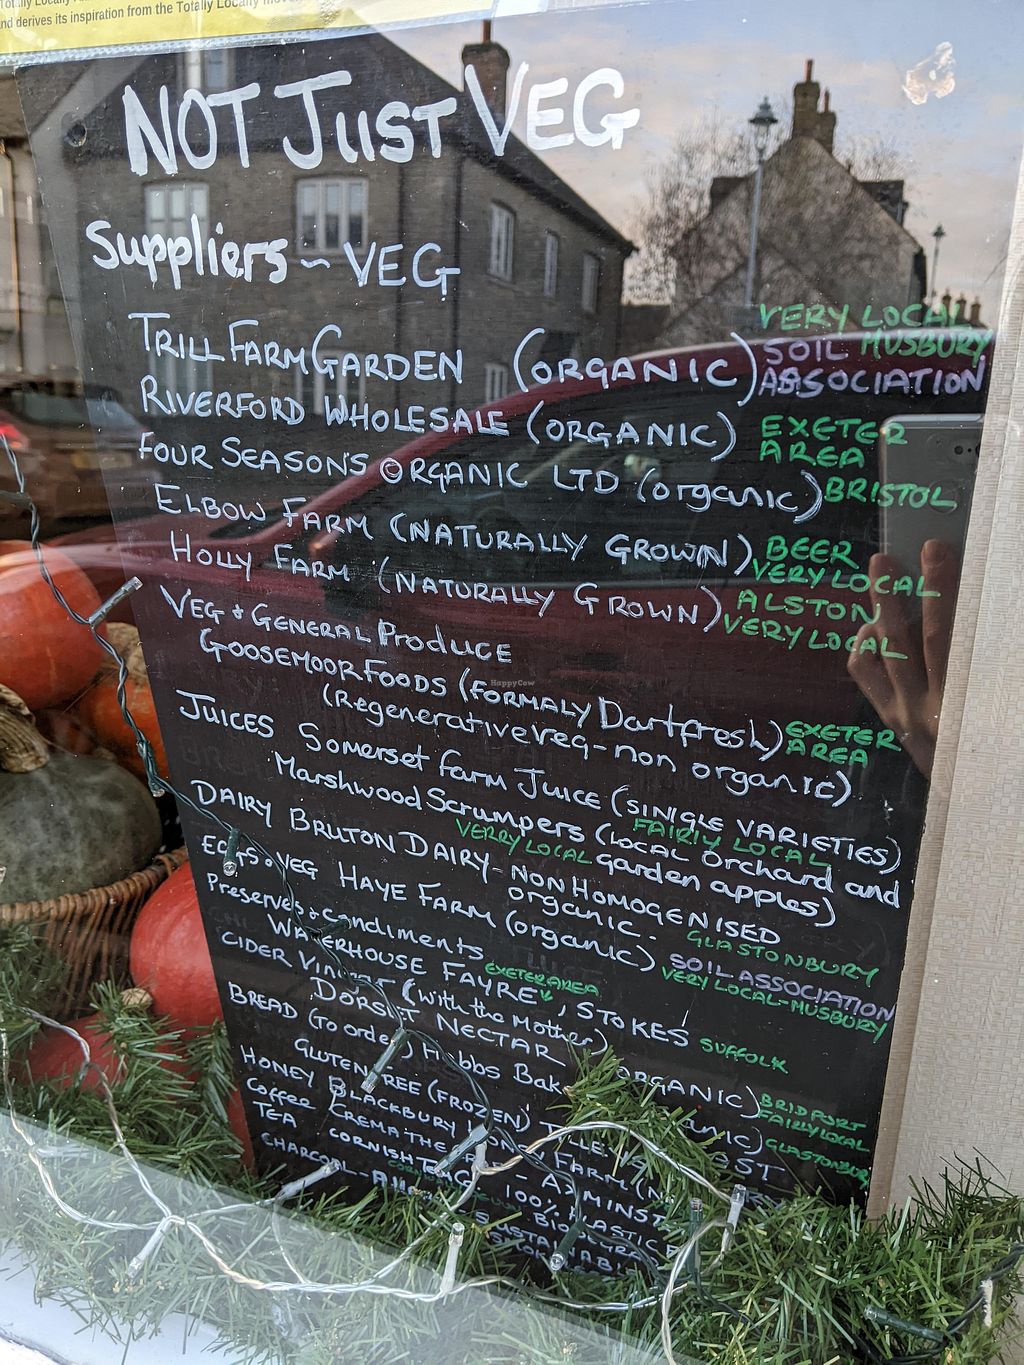 and derives its inspiration from the Totally Locally
NOT JUST VEG
Suppliers ~ VEG
TRILL FARM GARDEN (ORGANIC) VERY LOCAL MUSBURY
SOIL ASSOCIATION
RIVERFORD WHOLESALE (ORGANIC) EXETER AREA
FOUR SEASONS ORGANIC LTD (organic) BRISTOL
ELBOW FARM (NATURALLY GROWN) BEER VERY LOCAL
HOLLY FARM (NATURALLY GROWN) ALSTON VERY LOCAL
VEG & GENERAL PRODUCE
GOOSEMOOR FOODS (FORMALY Dartfresh) EXETER AREA
(Regenerative veg - non organic)
JUICES SOMERSET farm JUICE (SINIGLE VARIETIES)
FAIRLY LOCAL
Marshwood Scrumpers (LOCAL Orchard and
VERRY LOCAL garden apples)
DAIRY BRUTON DAIRY - NON HOMOGENISED
organic. GLASTONBURY
EGGS & VEG HAYE FARM (organic) SOIL ASSOCIATION
VERY LOCAL - MUSBURY
Preserves & condiments
WATERHOUSE FAYRE, STOKES SUFFOLK
EXETER AREA
CIDER VINEGAR (with the Mother)
DORSET NECTAR (ORGANIC) BRIDPORT
FAIRLY LOCAL
BREAD (to order) Hobbs
GLUTEN FREE (FROZEN) GLASTONBURY
HONEY BLACKBURY HONEY FARM
Coffee CREMA
TEA CORNISH TEA 100% PLASTIC
CHARCOAL
HappyCow